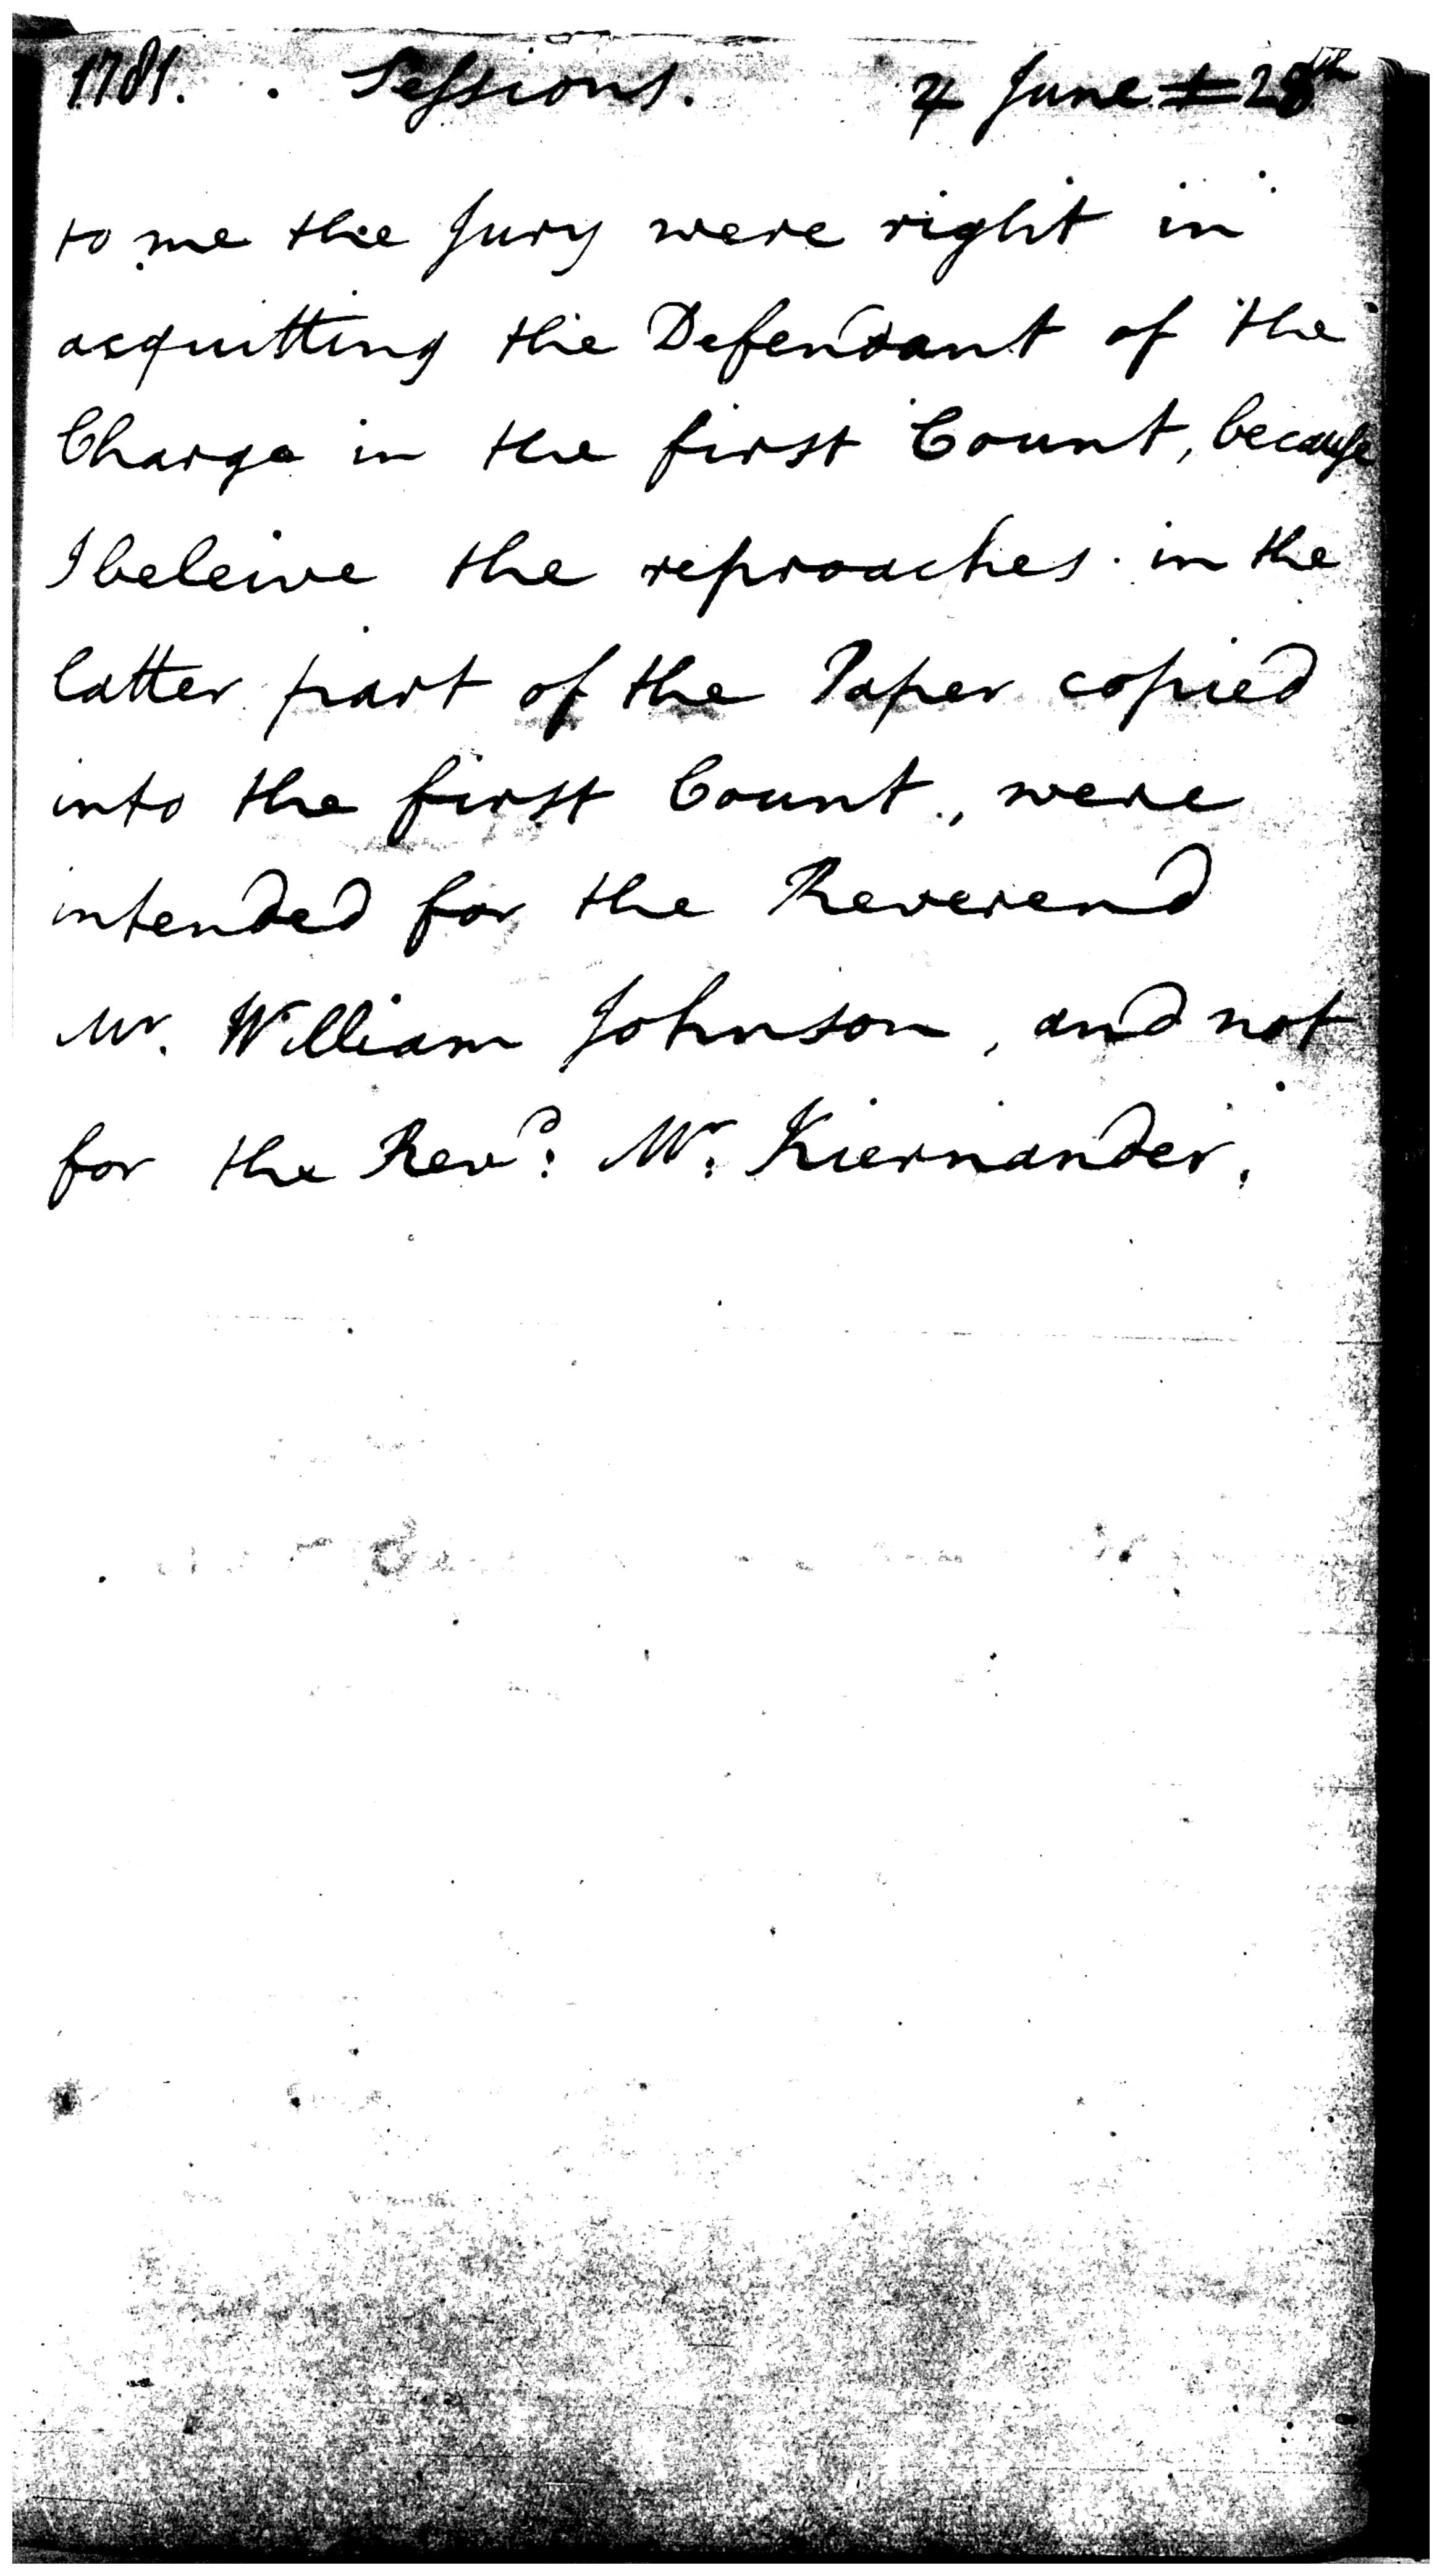 1781. Sessions. ♃ June 28th
to me the Jury were right in
acquitting the Defendant of the
Charge in the first Count, because
I beleive the reproaches in the
latter part of the Paper copied
into the first Count, were
intended for the Reverend
Mr. William Johnson, and not
for the Revd: Mr. Kiernander.